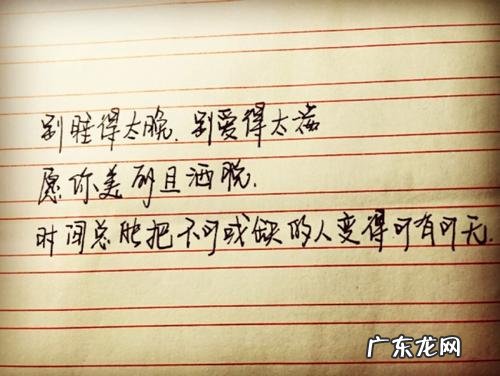 别睡得太晚.别爱得太满
愿你美丽且洒脱.
时间总能把不可或缺的人变得可有可无.
广东龙网